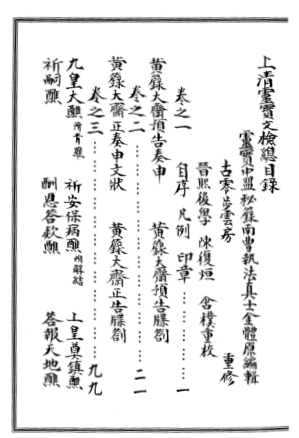 上清靈寶文檢總目錄
靈寶中盟秘籙南曹執法真士金體原編輯
古零芝雲房　重修
晉熙後學　陳復烜　含樸重校
卷之一
自序　凡例　印章………一
黃籙大齋預告奏申　黃籙大齋預告牒劄
卷之二………二一
黃籙大齋正奏申文狀　黃籙大齋正告牒劄
卷之三………九九
九皇大醮附青羅　祈安保病醮附解結　上皇尊鎮醮
祈嗣醮　酬恩荅欵醮　荅報天地醮